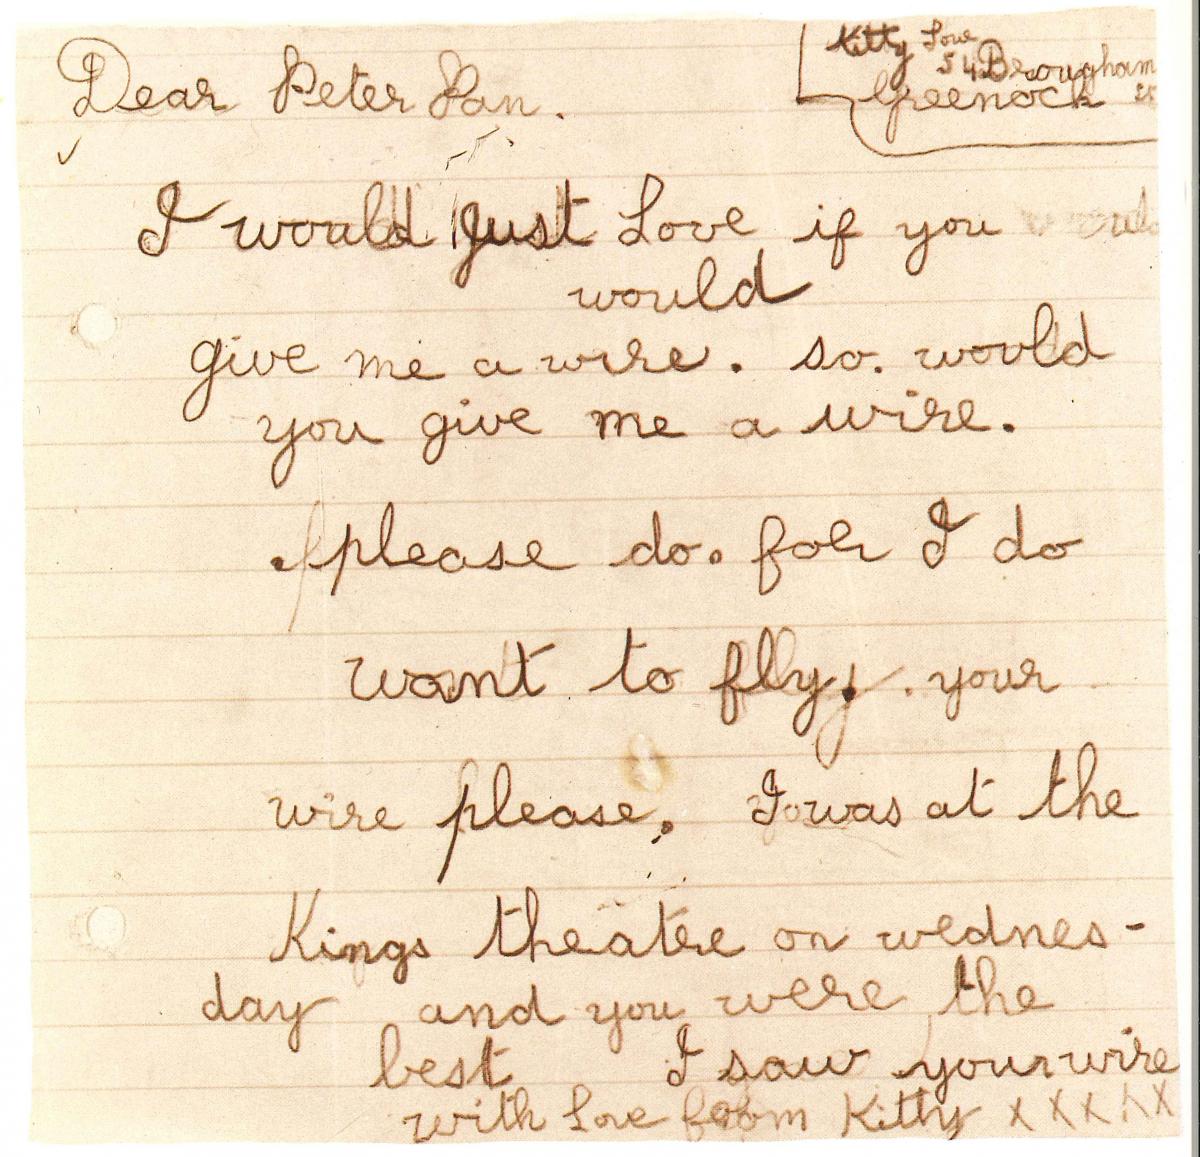 Kitty Love
54 Brougham
Greenock st
Dear Peter Pan.
I would just Love if you would
would
give me a wire. so. would
you give me a wire.
please do. for I do
want to fly. your
wire please. I was at the
Kings theatre on wednes-
day and you were the
best I saw your wire
with Love from Kitty x x x x x